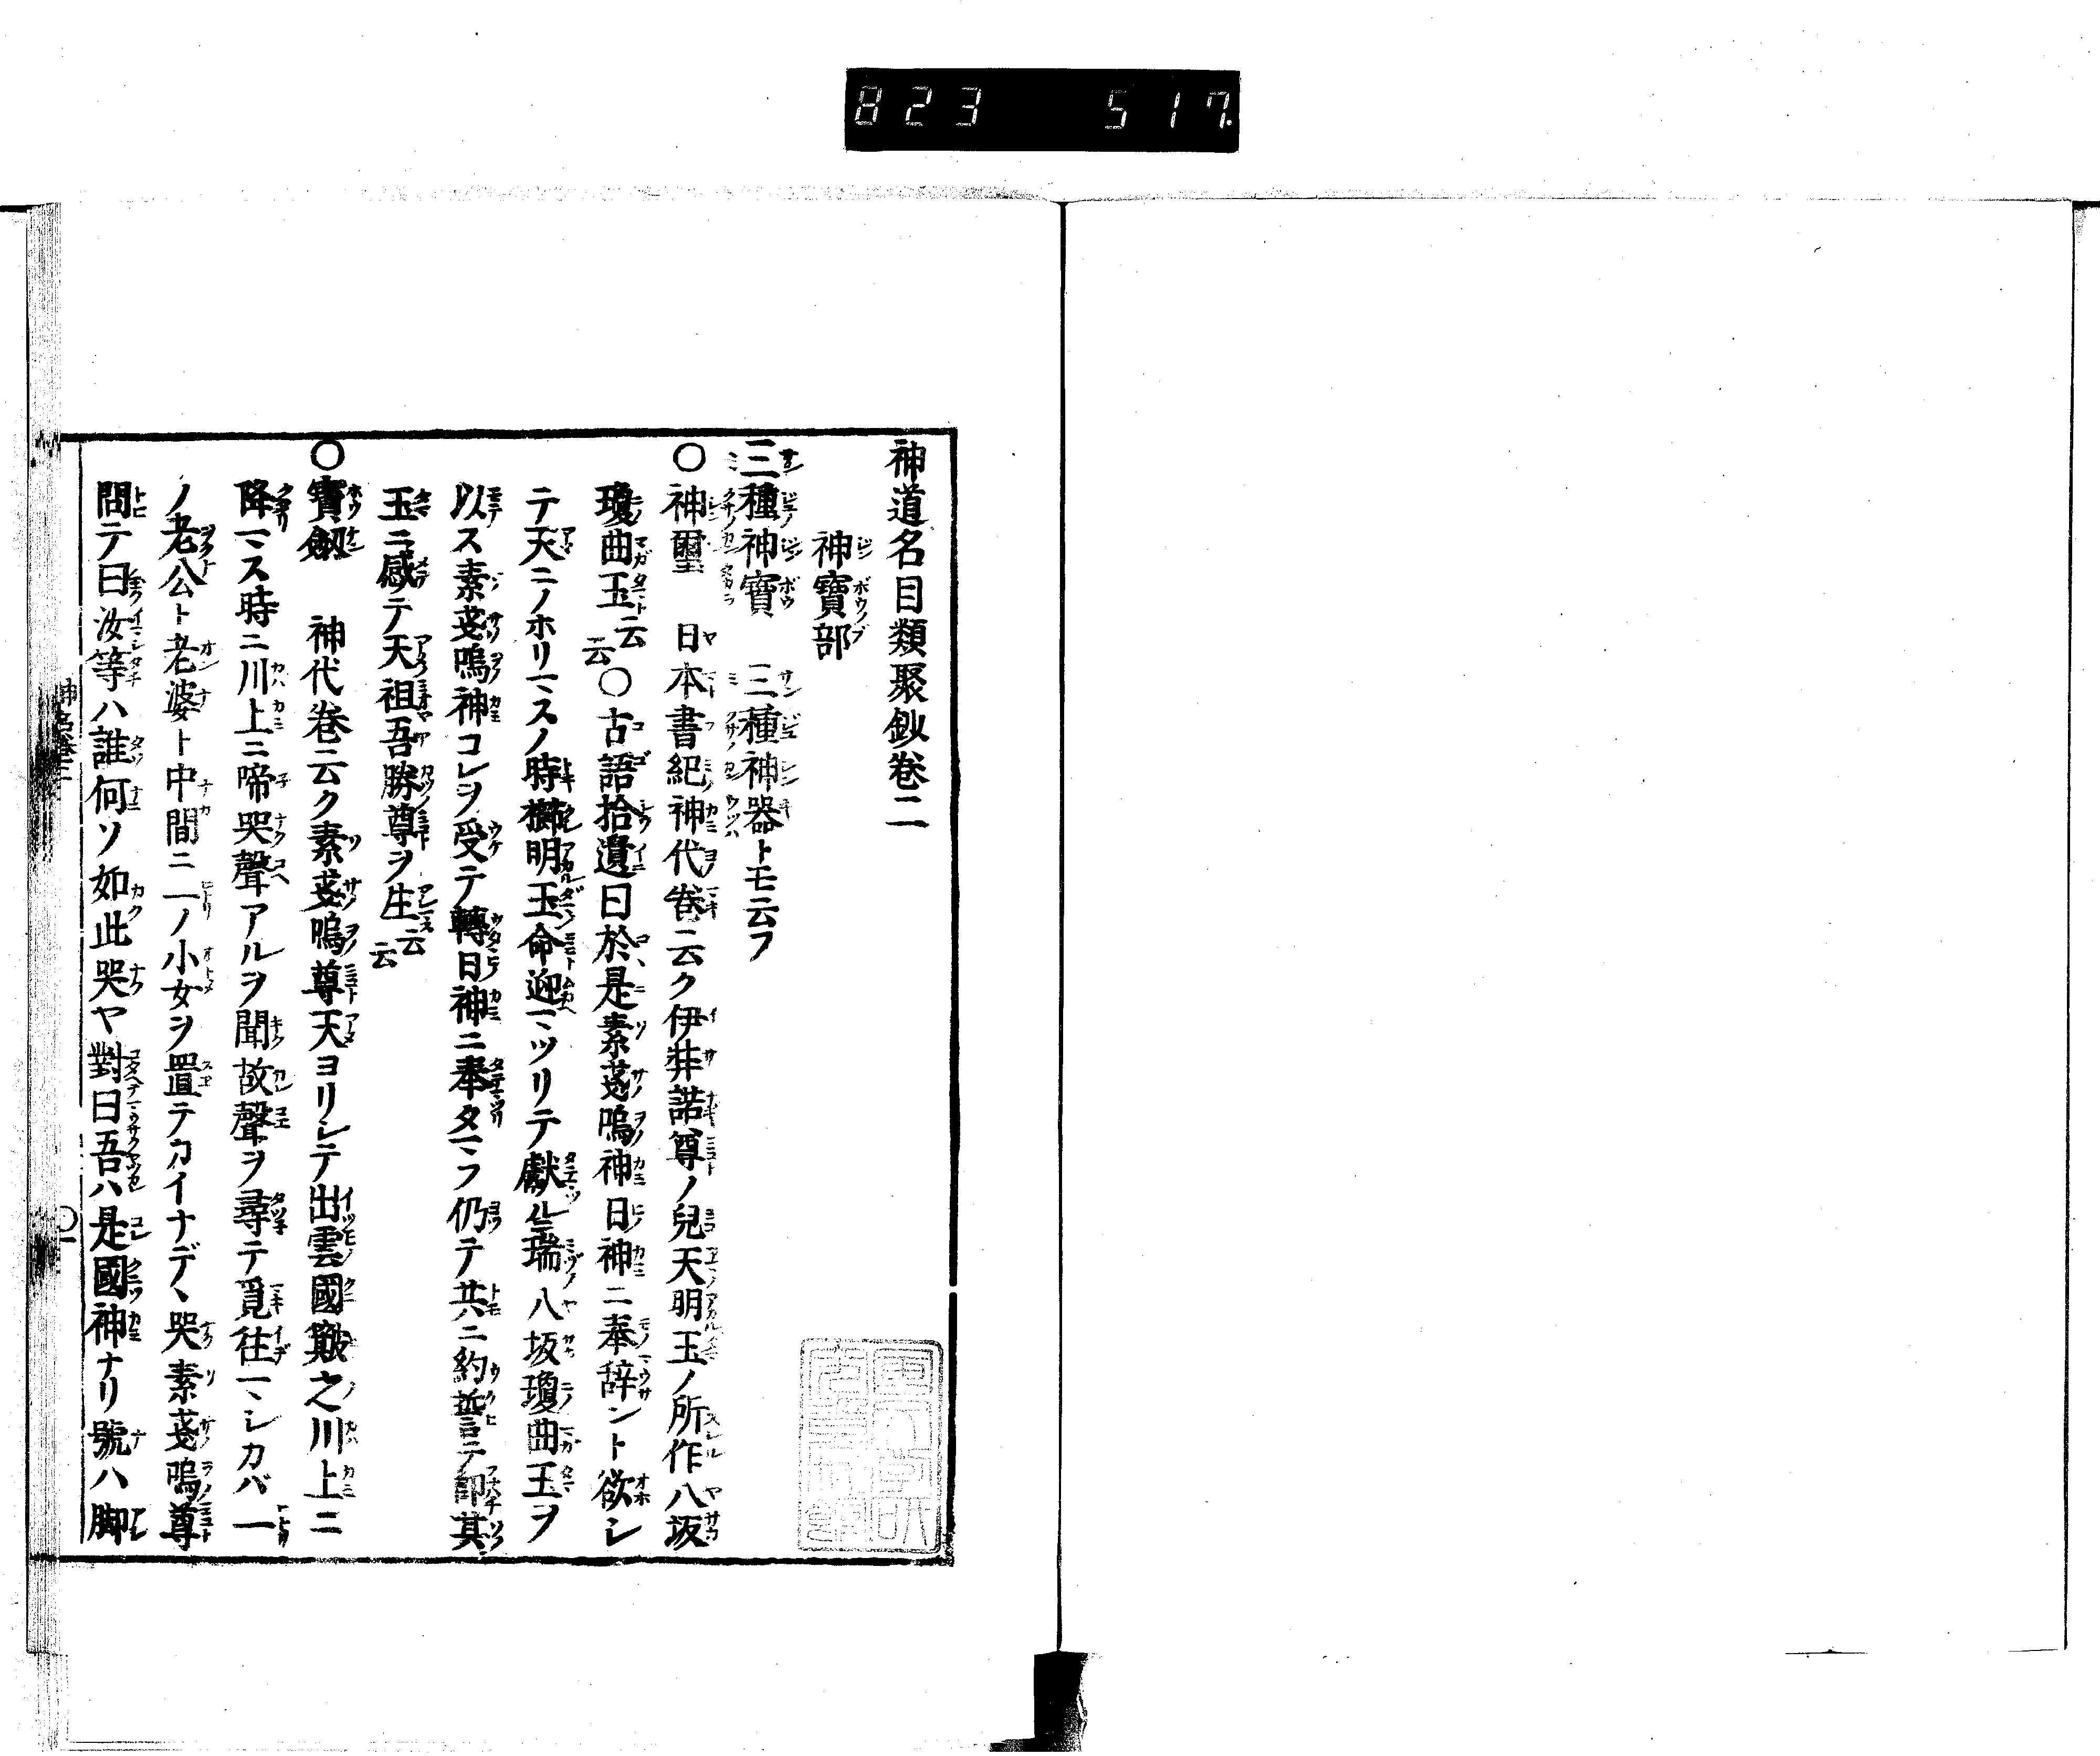 823 517.
神道名目類聚鈔巻二
神寶部
三種神寶　三種神器トモ云フ
〇神璽　日本書紀神代巻云ク伊弉諾尊ノ兒天明玉ノ所作八坂
瓊曲玉ト云云〇古語拾遺曰於是素戔嗚神日神ニ奉辞ント欲シ
テ天ニノホリマスノ時櫛明玉命迎マツリテ獻ルニ瑞八坂瓊曲玉ヲ
以ス素戔嗚神コレヲ受テ轉日神ニ奉タマフ仍テ共ニ約誓テ即其
玉ニ感テ天祖吾勝尊ヲ生云云
〇寶劔　神代巻云ク素戔嗚尊天ヨリシテ出雲國簸之川上ニ
降マス時ニ川上ニ啼哭聲アルヲ聞故聲ヲ尋テ覓往マシカバ一
ノ老公ト老婆ト中間ニ一ノ小女ヲ置テカイナデヽ哭素戔嗚尊
問テ曰汝等ハ誰何ソ如此哭ヤ對曰吾ハ是國神ナリ號ハ脚